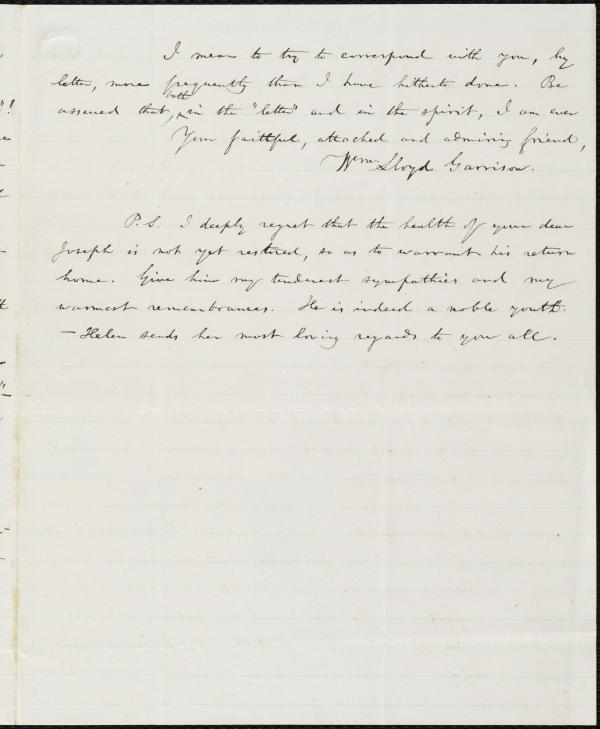 I mean to try to correspond with you, by
letter, more frequently than I have hitherto done. Be
both
assured that, ^ in the "letter" and in the spirit, I am ever
Your faithful, attached and admiring friend,
Wm. Lloyd Garrison.
P. S. I deeply regret that the health of your dear
Joseph is not yet restored, so as to warrant his return
home. Give him my tenderest sympathies and my
warmest remembrances. He is indeed a noble youth.
— Helen sends her most loving regards to you all.